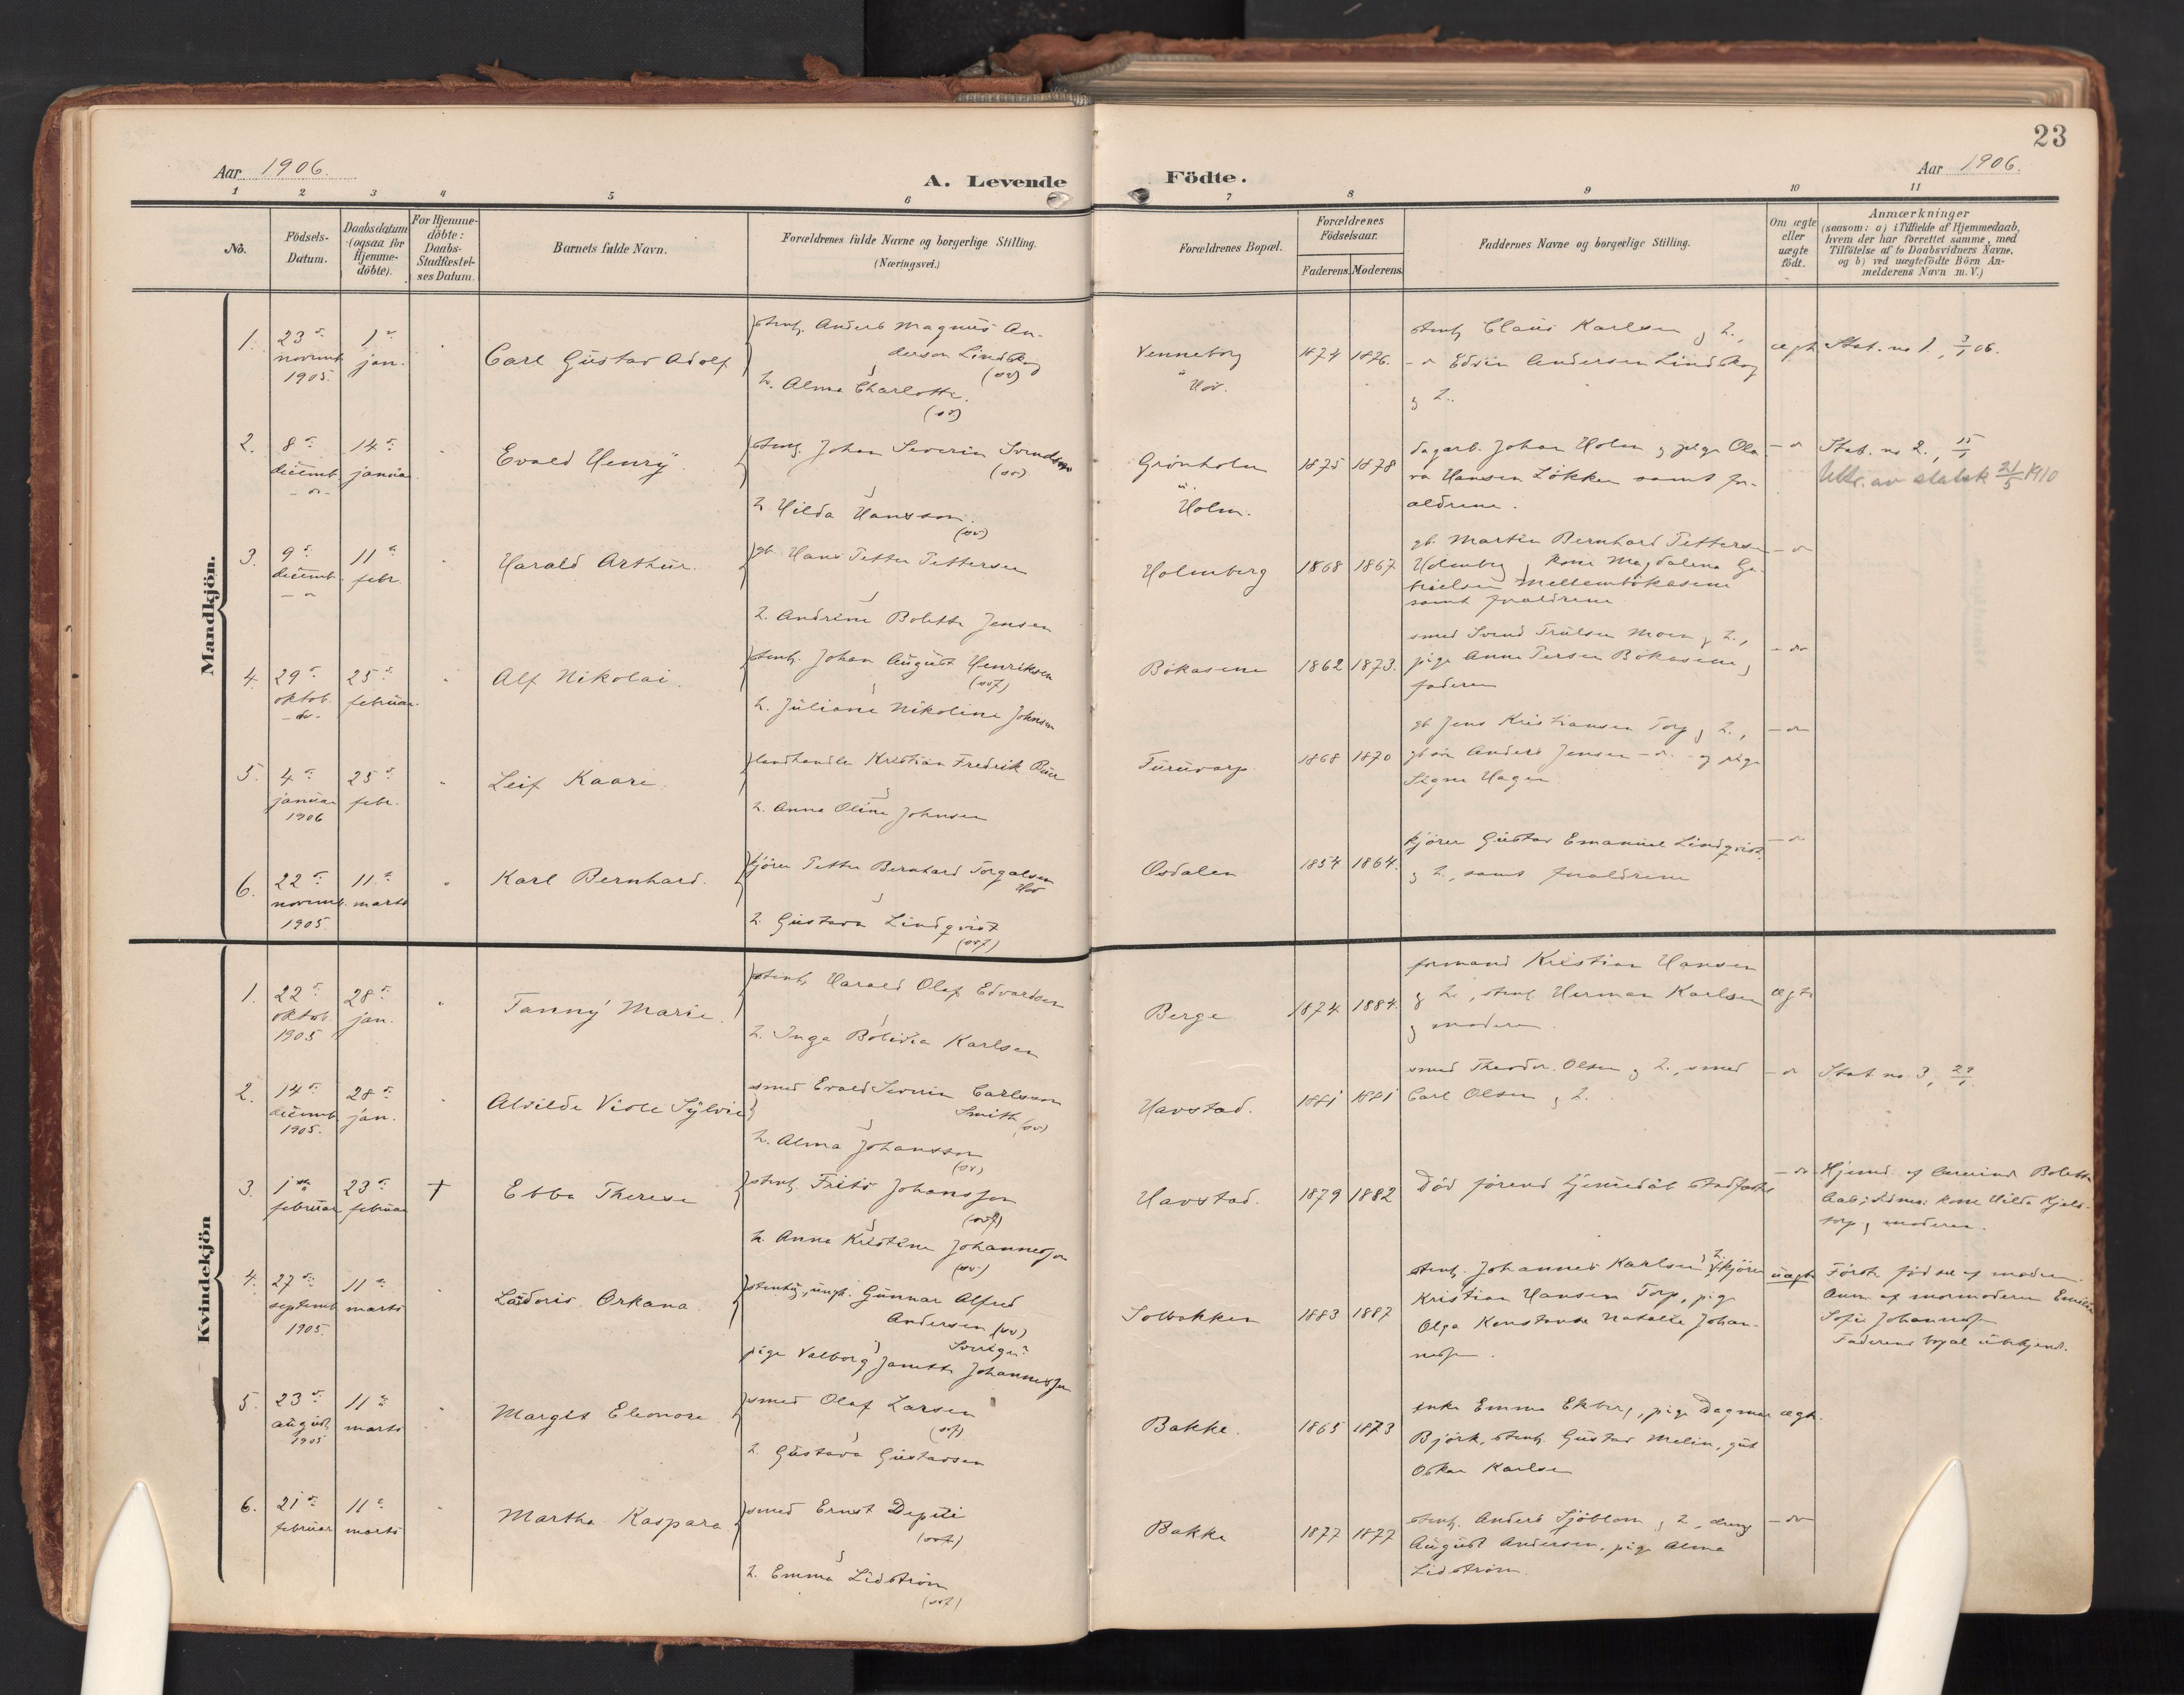 23
Aar 1906.
A. Levende Födte.
Aar 1906.
1 2 3 4 5 6 7 8 9 10 11
No.
Födsels-
Datum.
Daabsdatum
(ogsaa for
Hjemme-
döbte).
For Hjemme-
döbte:
Daabs-
Stadfæstel-
ses Datum.
Barnets fulde Navn.
Forældrenes fulde Navne og borgerlige Stilling.
(Næringsvei.)
Forældrenes Bopæl.
Forældrenes
Födselsaar.
Faderens. Moderens.
Faddernes Navne og borgerlige Stilling.
Om ægte
eller
uægte
födt.
Anmærkninger
(saasom: a) i Tilfælde af Hjemmedaab,
hvem der har forrettet samme, med
Tilföielse af to Daabsvidners Navne,
og b) ved uægtefödte Börn An-
melderens Navn m. V.)
Mandkjön.
1.
23
novemb
1905.
1
jan.
Carl Gustav Adolf
stenh. Anders Magnus An-
derson Lindskog
(sv)
h. Alma Charlotte.
(sv)
Venneborg
Hov.
1874
1876.
stenh Claus Karlsen g h.,
Edvin Andersen Lindskog
g h..
ægt
Stat. no 1, 3/1 06.
2.
8
decemb
14
januar
Evald Henry
stenh. Johan Severin Svendsen
(sv)
h Hilda Hansson
(sv)
Grönholm
Holm.
1875
1878
dagarb. Johan Holm g pige Ola-
va Hansen Løkken samt for-
ældrene.
Stat. no 2., 15/1
Utskr. av statsk 21/5 1910
3.
9
decemb
11
febr.
Harald Arthur.
gb. Hans Petter Pettersen
h. Andrine Bolette Jensen
Holmberg
1868
1867
gb. Martin Bernhard Pettersen
Holmberg g kone Magdalena Ga-
brielsen Mellembökasene
samt forældrene
4.
29
oktob.
25
februar
Alf Nikolai.
stenh. Johan August Henriksen
h. Juliane Nikoline Johnsen
Bökasene
1862
1873.
smed Svend Trulsen Moen g h.,
pige Anne Persen Bökasene g
faderen
5.
4
januar
1906
25
febr.
Leif Kaare.
landhandler Kristian Fredrik
h. Anna Oline Johnsen
1868
1870
gb Jens Kristiansen Torp g h.,
Anders Jensen og pige
Signe Hagen
6.
22
novemb.
1905
11
marts
Karl Bernhard.
kjörer Petter Bernhard Torgalsen
h. Gustava Lindqvist
Osdalen
1854
1864.
kjörer Gustav Emanuel Lindqvist
g h., samt forældrene
Kvindekjön
1.
22
oktob.
1905
28
jan.
Fanny Marie.
stenh Harald Olaf Edvardsen
h. Inga Bolivia Karlsen
Berge
1874
1884.
formand Kristian Hansen
g h., stenh Herman Karlsen
g moderen
ægte
2.
14
decemb
1905.
28
jan.
Alvilde Viole Sylvie
smed Evald Severin Carlsson
Smith (sv)
h. Alma Johansson
(sv)
Havstad.
1881
1881
smed Theodor Olsen g h., smed
Carl Olsen g h.
Stat. no 3, 29/1
3.
1
februar
23
februar
†
Ebba Therese
stenh. Frits Johansson
h. Anna Kristine Johannesson
(sv)
Havstad.
1879
1882
Död förend hjemmedåb stadfæstet
Hjemd. af Bolette
kone Hilda Kjels-
torp g moderen.
4.
27
septemb
1905.
11
marts
Orkana.
stenh, ungk. Gunnar Alfred
Andersen (sv)
Sverige?
pige Valborg Janette Johannessen
Solbakken
1883
1887
stenh. Johannes Karlsen g h. kjörer
Kristian Hansen Torp, pige
Olga Konstanse Natalie Johan-
nessen.
uægte
Første födsel af moderen.
Anm. af mormoderen Emilie
Sofie Johannessen
Faderens bopæl ubekjendt.
5.
23
august
1905
11
marts
Margit Eleonore
smed Olaf Larsen
h. Gustava Gustavsen
Bakke.
1865
1873
enke Emma Ekberg, pige Dagmar
Björk, stenh. Gustav Melin, gut
Oskar Karlsen
ægt.
6.
21
februar
11
marts
Martha Kaspara
smed Ernst
h. Emma Lidström
Bakke
1877
1877
stenh. Anders Sjöblom g h., dreng
August Andersen, pige Alma
Lidström.